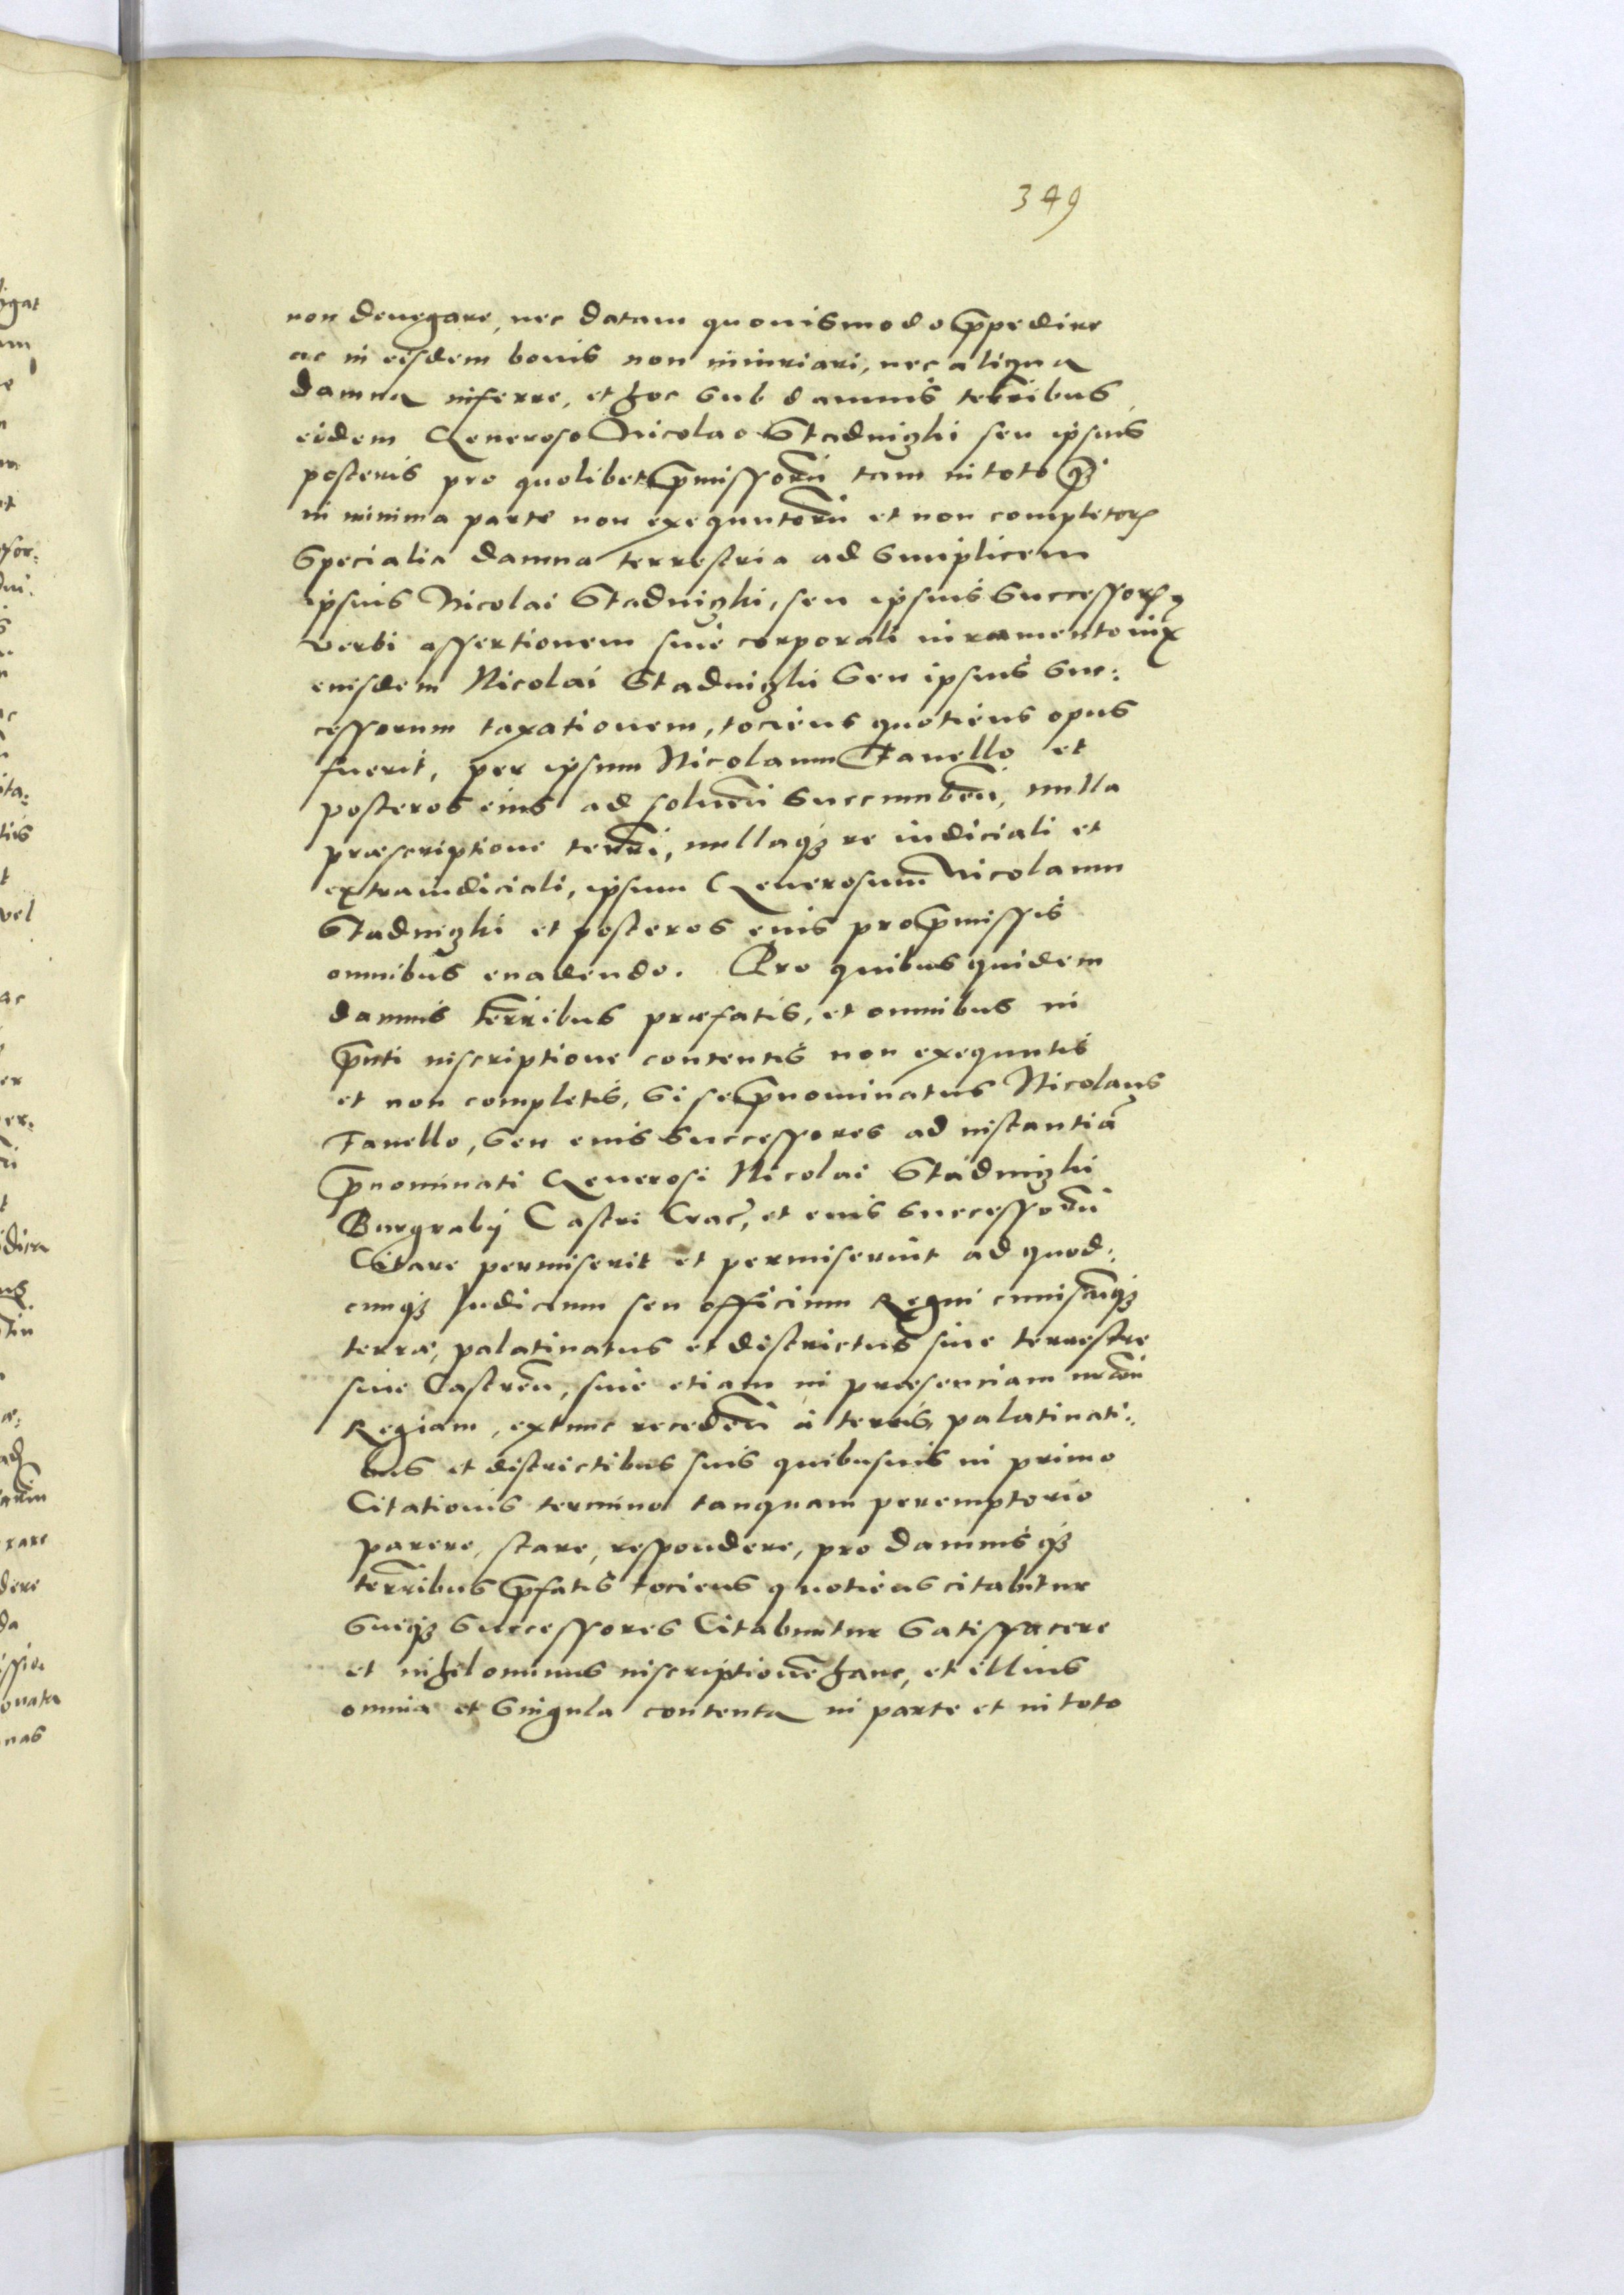 349
non denegare, nec datam quouismodo p̄pedire
ac in eisdem bonis non iniuriari, nec aliqua
damna inferre, et hoc sub damnis terribus
eidem Generoso Nicolao Stadnizki seu ipsius
posteris pro quolibet p̄missorū tam in toto q̄
in minima parte non exequutorū et non completorꝝ
Specialia damna terrestria ad Simplicem
ipsius Nicolai Stadnizki, seu ipsius Successorꝝ
verbi assertionem siue corporali iuramento iux
eiusdem Nicolai Stadnizki Seu ipsius Suc:
cessorum taxationem, tociens quotiens opus
fuerit, per ipsum Nicolaum Fanello et
posteros eius ad soluen̄ Succumben̄, nulla
præscriptione terrī, nullaqꝫ re iudiciali et
extraiudiciali, ipsum Generosum Nicolaum
Stadnizki et posteros eius pro p̄missis
omnibus euadendo. Pro quibus quidem
damnis ter̄ribus præfatis, et omnibus in
p̄nti inscriptione contentis non exequutis
et non completis, Si se p̄nominatus Nicolaus
Fanello, Seu eius Successores ad instantiā
p̄nominati Generosi Nicolai Stadnizki
Burgrabij Castri Crac̄, et eius Successorū
Citare permiserit et permiserint ad quod:
cunqꝫ Judicium seu officium Regni cuiuscūqꝫ
terræ, palatinatus et districtus siue terrestre
siue Castren̄, siue etiam in præsenciam nr̄am
Regiam, extunc receden̄ a terris, palatinati:
bus et districtibus suis quibusuis in primo
Citationis termino tanquam peremptorio
parere, stare, respondere, pro damnis qꝫ
ter̄ribus p̄fatis tociens quotiens citabitur
Suiqꝫ Successores Citabuntur Satisfacere
et nihilominus inscriptionē hanc, et illius
omnia et Singula contenta in parte et in toto